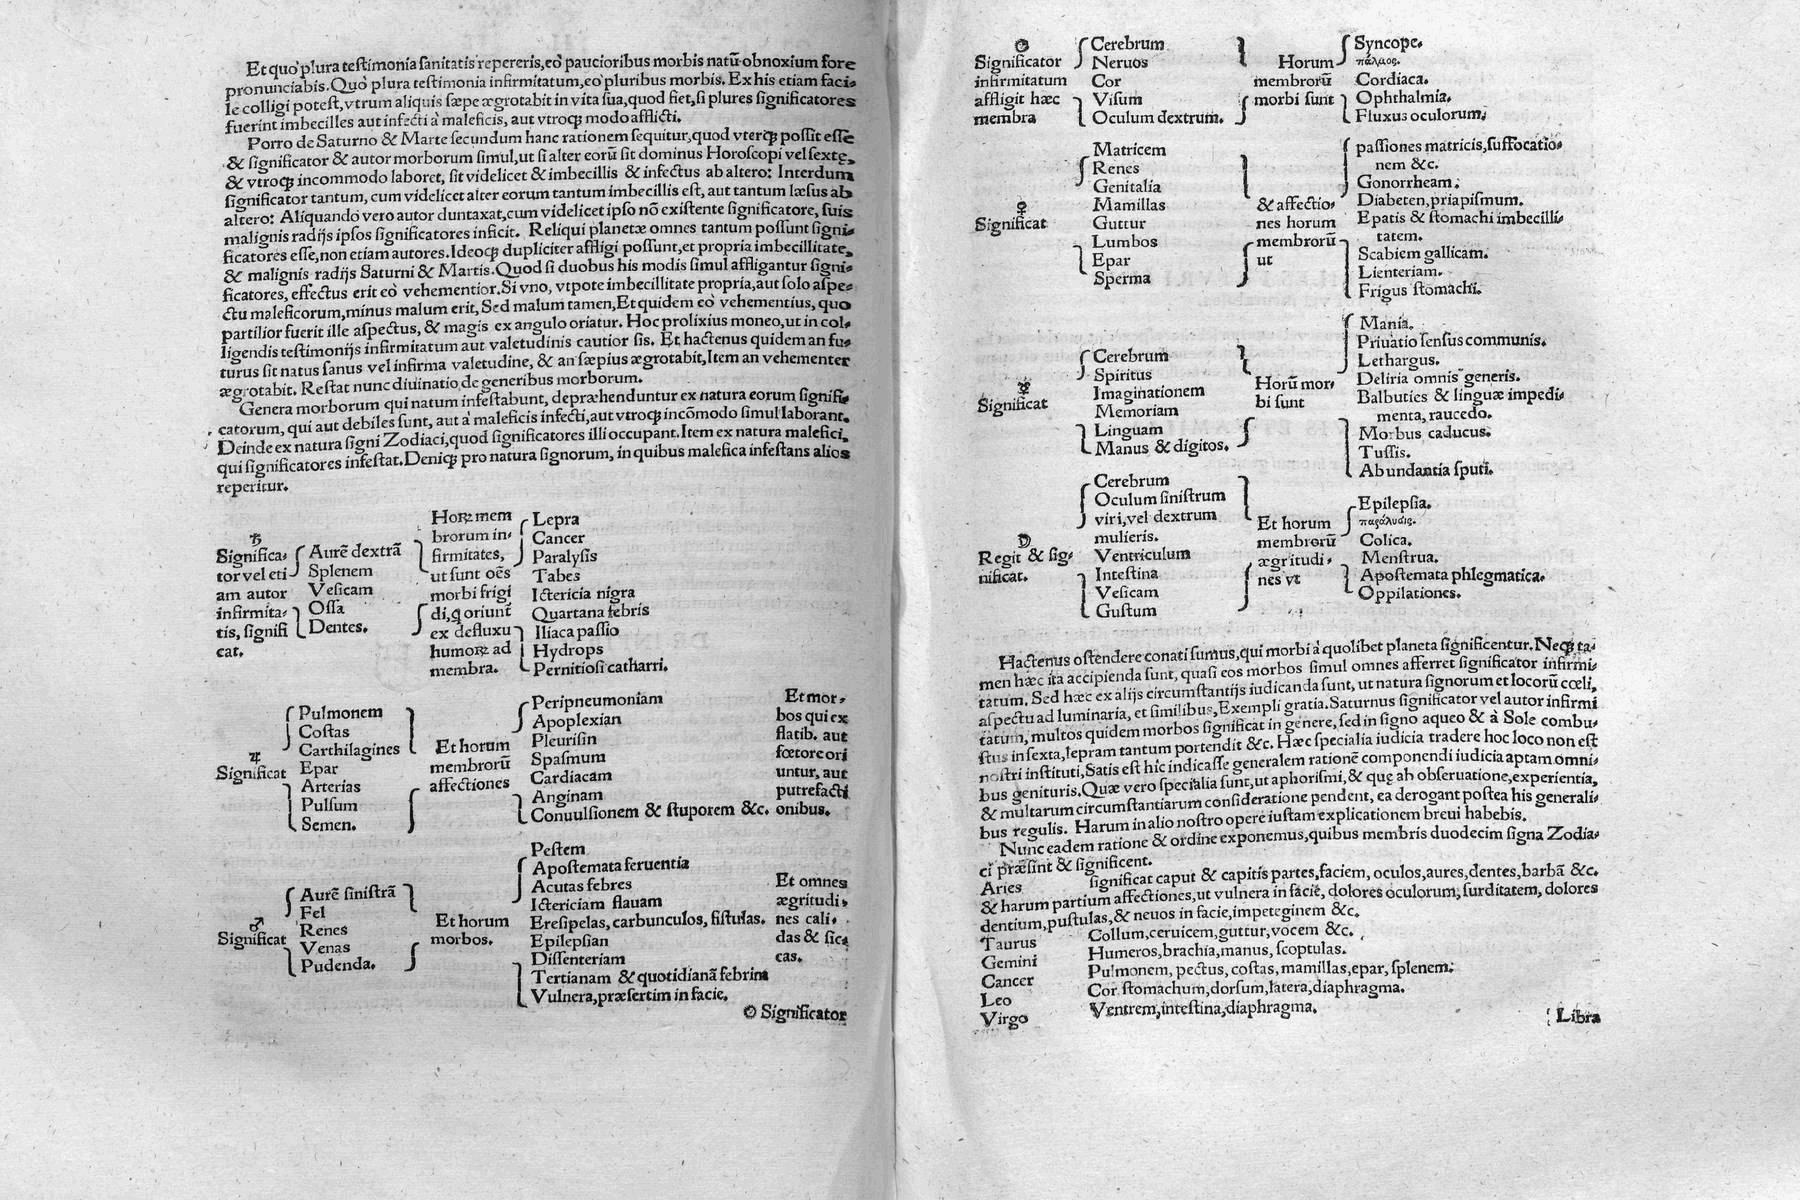 Et quo plura testimonia sanitatis repereris, eo paucioribus morbis natū obnoxium fore
pronunciabis. Quo plura testimonia infirmitatum, eo pluribus morbis. Ex his etiam faci-
le colligi potest, vtrum aliquis sæpe ægrotabit in vita sua, quod fiet, si plures significatores
fuerint imbecilles aut infecti à maleficis, aut vtroq; modo afflicti.
Porro de Saturno & Marte secundum hanc rationem sequitur, quod vterq; possit esse
& significator & autor morborum simul, ut si alter eorū sit dominus Horoscopi vel sextę,
& vtroq; incommodo laboret, sit videlicet & imbecillis & infectus ab altero: Interdum
significator tantum, cum videlicet alter eorum tantum imbecillis est, aut tantum læsus ab
altero: Aliquando vero autor duntaxat, cum videlicet ipso nō existente significatore, suis
malignis radijs ipsos significatores inficit. Reliqui planetæ omnes tantum possunt signi-
ficatores esse, non etiam autores. Ideoq; dupliciter affligi possunt, et propria imbecillitate,
& malignis radijs Saturni & Martis. Quod si duobus his modis simul affligantur signi-
ficatores, effectus erit eo vehementior. Si vno, vtpote imbecillitate propria, aut solo aspe-
ctu maleficorum, minus malum erit, Sed malum tamen, Et quidem eo vehementius, quo
partilior fuerit ille aspectus, & magis ex angulo oriatur. Hoc prolixius moneo, ut in col-
ligendis testimonijs infirmitatum aut valetudinis cautior sis. Et hactenus quidem an fu-
turus sit natus sanus vel infirma valetudine, & an sæpius ægrotabit, Item an vehementer
ægrotabit. Restat nunc diuinatio de generibus morborum.
Genera morborum qui natum infestabunt, depræhenduntur ex natura eorum signifi-
catorum, qui aut debiles sunt, aut à maleficis infecti, aut vtroq; incōmodo simul laborant.
Deinde ex natura signi Zodiaci, quod significatores illi occupant. Item ex natura malefici,
qui significatores infestat. Deniq; pro natura signorum, in quibus malefica infestans alios
reperitur.
♄
Significa-
tor vel eti
am autor
infirmita-
tis, signifi
cat.
Aurē dextrā
Splenem
Vesicam
Ossa
Dentes.
Horꝝ mem
brorum in-
firmitates,
ut sunt oēs
morbi frigi
di, q oriunt
ex defluxu
humorꝝ ad
membra.
Lepra
Cancer
Paralysis
Tabes
Ictericia nigra
Quartana febris
Iliaca passio
Hydrops
Pernitiosi catharri.
♃
Significat
Pulmonem
Costas
Carthilagines
Epar
Arterias
Pulsum
Semen.
Et horum
membrorū
affectiones
Peripneumoniam
Apoplexian
Pleurisin
Spasmum
Cardiacam
Anginam
Conuulsionem & stuporem &c.
Et mor-
bos qui ex
flatib. aut
fœtore ori
untur, aut
putrefacti
onibus.
♂
Significat
Aurē sinistrā
Fel
Renes
Venas
Pudenda.
Et horum
morbos.
Pestem
Apostemata feruentia
Acutas febres
Ictericiam flauam
Eresipelas, carbunculos, fistulas.
Epilepsian
Dissenteriam
Tertianam & quotidianā febrim
Vulnera, præsertim in facie.
Et omnes
ægritudi-
nes cali-
das & sic-
cas.
☉ Significator
☉
Significator
infirmitatum
affligit hæc
membra
Cerebrum
Neruos
Cor
Visum
Oculum dextrum.
Horum
membrorū
morbi sunt
Syncope.
πάλμος.
Cordiaca.
Ophthalmia.
Fluxus oculorum.
♀
Significat
Matricem
Renes
Genitalia
Mamillas
Guttur
Lumbos
Epar
Sperma
& affectio-
nes horum
membrorū
ut
passiones matricis, suffocatio-
nem &c.
Gonorrheam.
Diabeten, priapismum.
Epatis & stomachi imbecilli-
tatem.
Scabiem gallicam.
Lienteriam.
Frigus stomachi.
☿
Significat
Cerebrum
Spiritus
Imaginationem
Memoriam
Linguam
Manus & digitos.
Horū mor-
bi sunt
Mania.
Priuatio sensus communis.
Lethargus.
Deliria omnis generis.
Balbuties & linguæ impedi-
menta, raucedo.
Morbus caducus.
Tussis.
Abundantia sputi.
☽
Regit & sig-
nificat.
Cerebrum
Oculum sinistrum
viri, vel dextrum
mulieris.
Ventriculum
Intestina
Vesicam
Gustum
Et horum
membrorū
ægritudi-
nes vt
Epilepsia.
παράλυσις.
Colica.
Menstrua.
Apostemata phlegmatica.
Oppilationes.
Hactenus ostendere conati sumus, qui morbi à quolibet planeta significentur. Neq; ta-
men hæc ita accipienda sunt, quasi eos morbos simul omnes afferret significator infirmi-
tatum. Sed hæc ex alijs circumstantijs iudicanda sunt, ut natura signorum et locorū cœli,
aspectu ad luminaria, et similibus, Exempli gratia. Saturnus significator vel autor infirmi
tatum, multos quidem morbos significat in genere, sed in signo aqueo & à Sole combu-
stus in sexta, lepram tantum portendit &c. Hæc specialia iudicia tradere hoc loco non est
nostri instituti, Satis est hic indicasse generalem rationē componendi iudicia aptam omni-
bus genituris. Quæ vero specialia sunt, ut aphorismi, & quę ab obseruatione, experientia,
& multarum circumstantiarum consideratione pendent, ea derogant postea his generali-
bus regulis. Harum in alio nostro opere iustam explicationem breui habebis.
Nunc eadem ratione & ordine exponemus, quibus membris duodecim signa Zodia-
ci præsint & significent.
Aries significat caput & capitis partes, faciem, oculos, aures, dentes, barbā &c.
& harum partium affectiones, ut vulnera in facie, dolores oculorum, surditatem, dolores
dentium, pustulas, & neuos in facie, impeteginem &c.
Taurus Collum, ceruicem, guttur, vocem &c.
Gemini Humeros, brachia, manus, scoptulas.
Cancer Pulmonem, pectus, costas, mamillas, epar, splenem.
Leo Cor stomachum, dorsum, latera, diaphragma.
Virgo Ventrem, intestina, diaphragma.
Libra